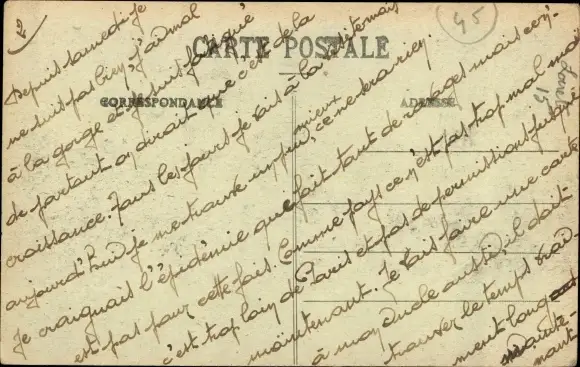 2
45
CARTE POSTALE
CORRESPONDANCE
ADRESSE
Depuis samedi je
ne suis pas bien, j'ai mal
à la gorge et je suis fatigué
de partout on dirait que c'est de la
croissance. Tous les jours je vais à la
aujourd'hui je me trouve un peu mieux, ce ne sera rien.
Je craignais l'épidémie que fait tant de ravages mais ce n'
est pas pour cette fois. Comme pays ce n'est pas trop mal mais
c'est trop loin de Paris et pas de permissions jusqu'à
maintenant. Je vais faire une carte
à mon oncle aussi, il doit
trouver le temps vrai-
ment long
mainte-
nant